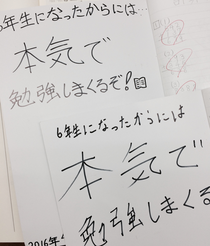 年生になったからには…
本気で
勉強しまくるぞ!
6年生になったからには
本気で
勉強しまくる
2016年